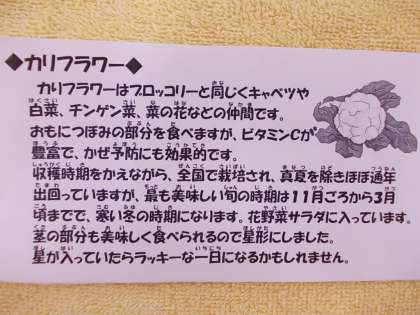 ◆カリフラワー◆
カリフラワーはブロッコリーと同じくキャベツや
白菜、チンゲン菜、菜の花などの仲間です。
おもにつぼみの部分を食べますが、ビタミンCが
豊富で、かぜ予防にも効果的です。
収穫時期をかえながら、全国で栽培され、真夏を除きほぼ通年
出回っていますが、最も美味しい旬の時期は11月ごろから3月
頃までで、寒い冬の時期になります。花野菜サラダに入っています。
茎の部分も美味しく食べられるので星形にしました。
星が入っていたらラッキーな一日になるかもしれません。